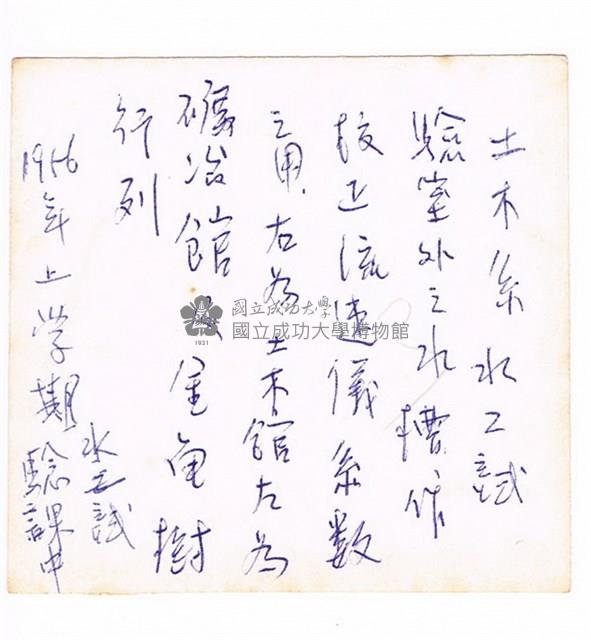 土木系水工試
驗室外之水槽作
校正流速儀系數
之用.右為土木館左為
礦冶館 金龟樹
行列
1956年上学期水工試
驗課中
國立成功大學
國立成功大學博物館
1931